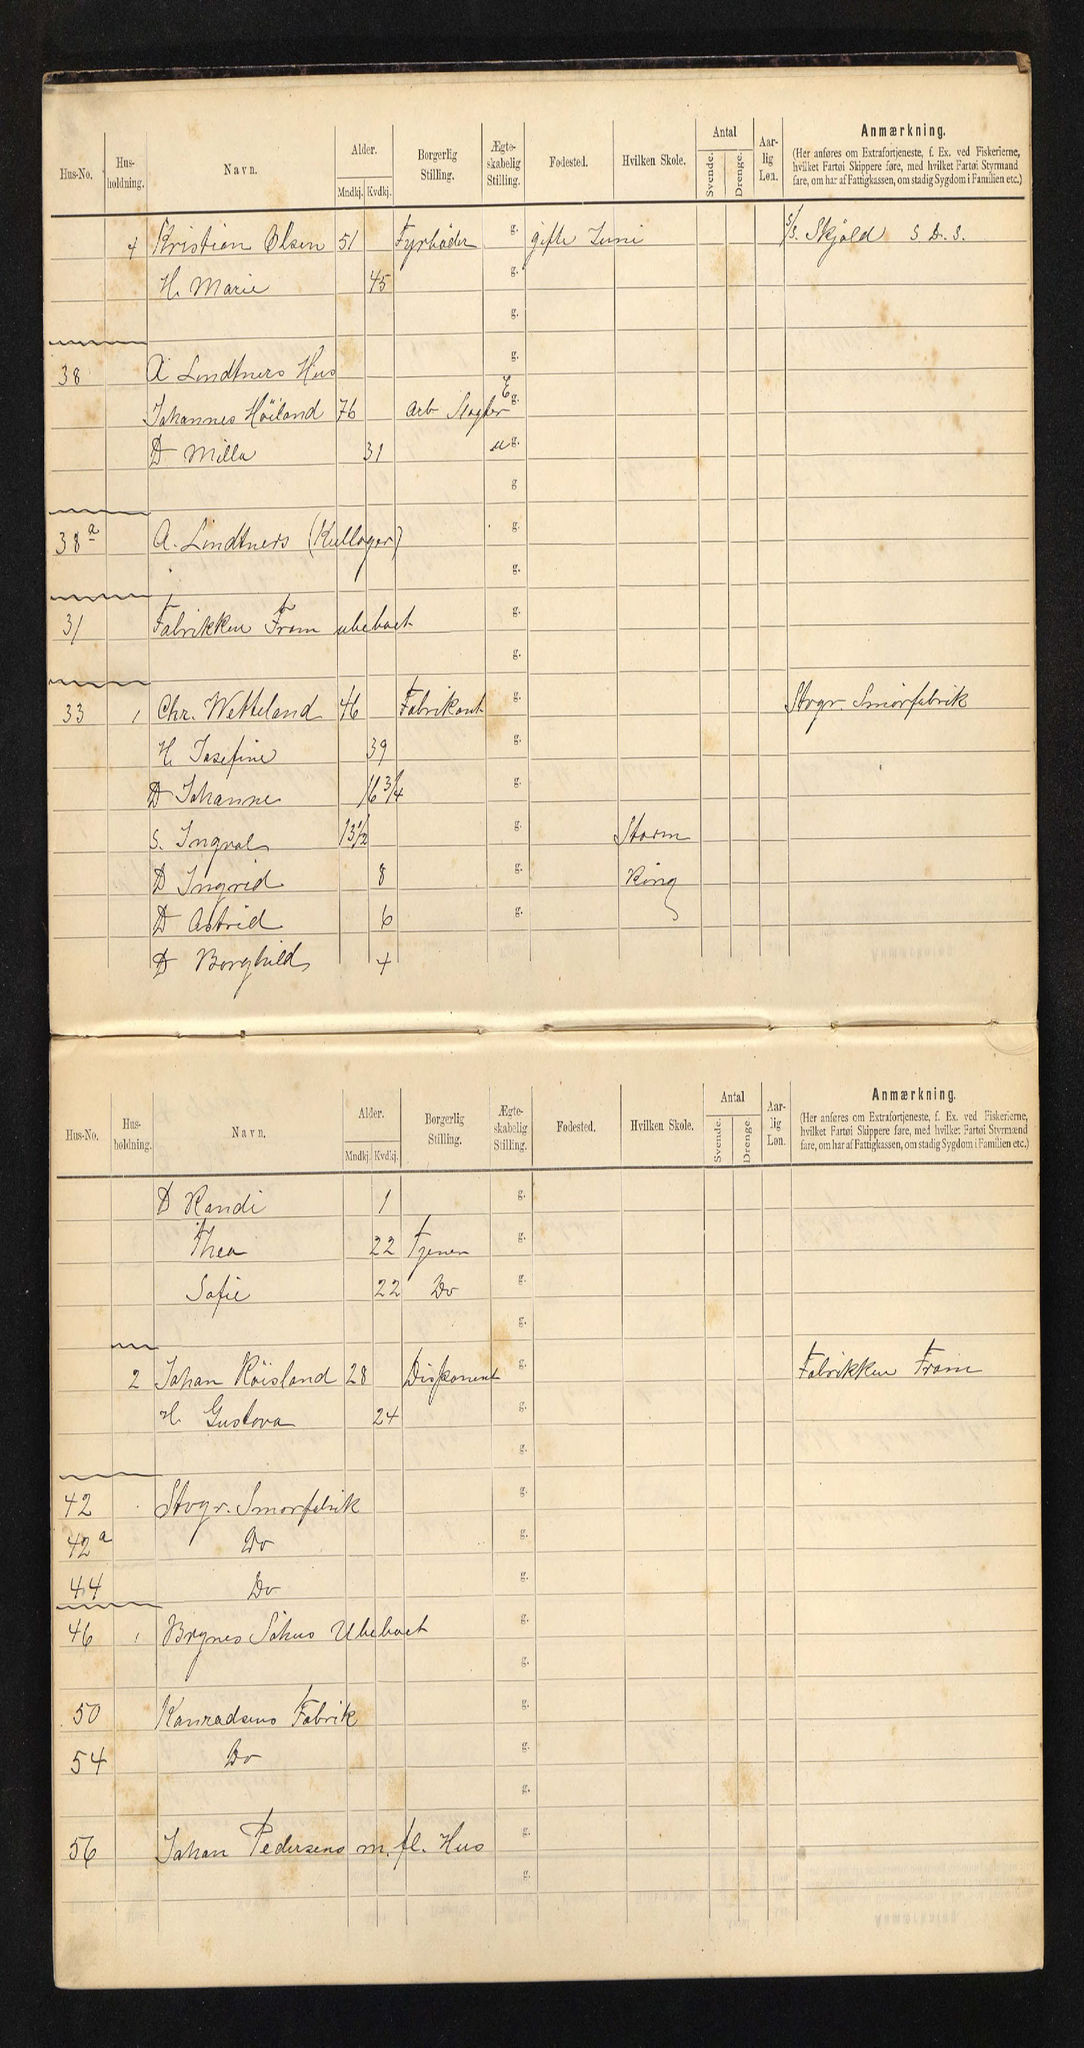 Hus-No. Husholdning. Navn. Alder. Mndkj. Kvdkj. Borgerlig Stilling. Ægteskabelig Stilling. Fødested. Hvilken Skole. Antal Svende. Drenge. Aarlig Løn. Anmærkning.
(Her anføres om Extrafortjeneste, f. Ex. ved Fiskerierne, hvilket Fartøi Skippere føre, med hvilket Fartøi Styrmænd fare, om har af Fattigkassen, om stadig Sygdom i Familien etc.)
4 Kristian Olsen 51 Fyrbøder g. gifte Juni S/S. Skjold S. D. S.
H. Marie 45 g.
g.
38 A Lindtners Hus g.
Johannes Höiland 76 Arb Slagter E g.
D Milla 31 u g.
g
38a A. Lindtners (Kullager) g.
g.
31 Fabrikken Fram ubeboet g.
g.
33 1 Chr. Wetteland 46 Fabrikant g. Stvgr. Smörfabrik
H. Josefine 39 g.
D Johanne 16 3/4 g.
S. Ingval 13 1/2 g. Storm
D Ingrid 8 g. King
D Astrid 6 g.
D Borghild 4
Hus-No. Husholdning. Navn. Alder. Mndkj. Kvdkj. Borgerlig Stilling. Ægteskabelig Stilling. Fødested. Hvilken Skole. Antal Svende. Drenge. Aarlig Løn. Anmærkning.
(Her anføres om Extrafortjeneste, f. Ex. ved Fiskerierne, hvilket Fartøi Skippere føre, med hvilket Fartøi Styrmænd fare, om har af Fattigkassen, om stadig Sygdom i Familien etc.)
D Randi 1 g.
Thea 22 Tjener g.
Sofie 22 Do g.
g.
2 Johan Röisland 28 Disponent g. Fabrikken Fram
H. Gustava 24 g.
g.
42 Stvgr. Smörfabrik g.
42a Do g.
44 Do g.
46 1 Brynes Söhus Ubeboet g.
g.
50 Konradsens Fabrik g.
54 Do g.
g.
56 Johan Pedersens m. fl. Hus g.
g.